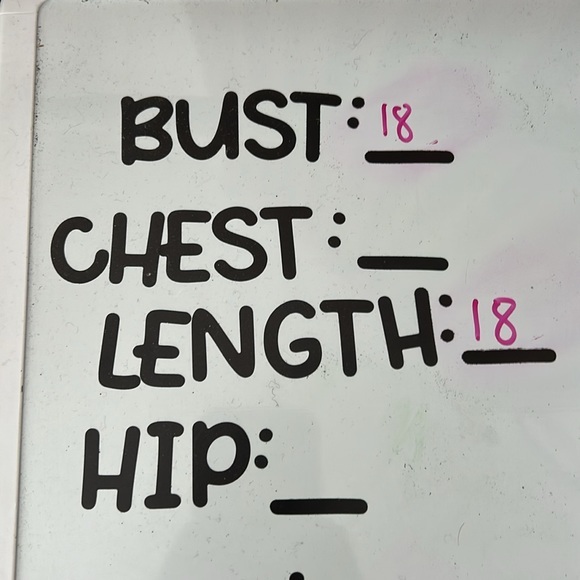 BUST: 18
CHEST: __
LENGTH: 18
HIP: __